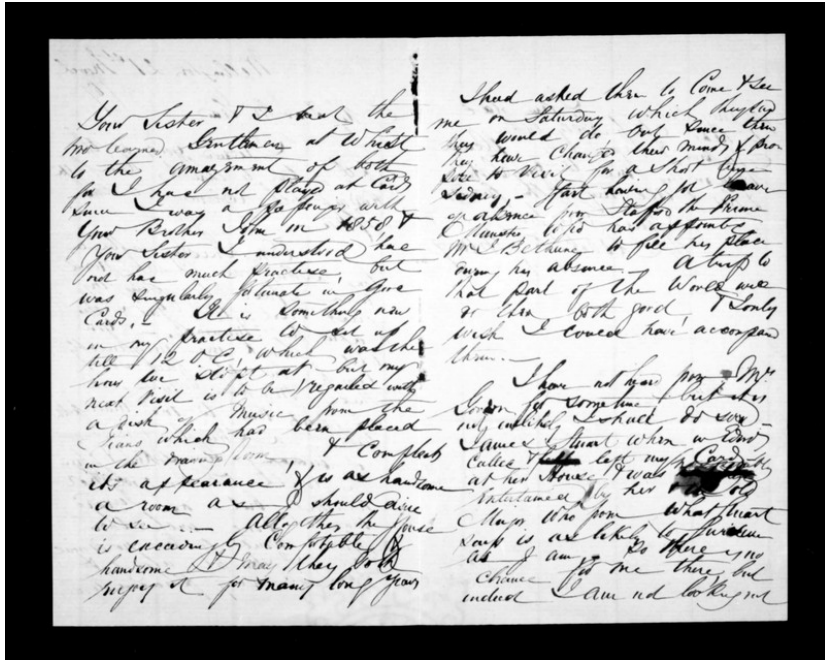 Your Sister & I beat the
two learned Gentlemen at Whist
to the amazement of both
for I have not played at Cards
since I was a
Your Brother John in 1858 &
Your Sister I understood have
not had much practise, but
was singularly fortunate in
Cards, - It is something new
in my practise to sit up
till 12 O C, which was the
hour we at but my
next Visit is to be regaled with
a dish of Music from the
Piano which had been placed
in the drawing room, & Compleats
its appearance, & is as handsome
a room as I should desire
to see. - Altogether the House
is exceedingly Comfortable &
handsome & may they both
enjoy it for many long years
I had asked them to Come & See
me on Saturday which
they would do but since then
they have changed their minds &
to Visit for a Short
Sidney, - Stuart having got leave
of absence from Stafford the Prime
Minister who has appointed
Mr Bethune to fill his place
during his absence - A trip to
that part of the World will
do them both good, & I only
wish I could have accompanied
them. -
I have not heard from Mrs
Gordon for sometime, but it is
not unlikely I shall do so
James Stuart when in
called & left my Card
at her House & was
entertained by her & the old
Major who from what Stuart
says is as likely to
as I am - So there is no
chance for me there, but
indeed I am not looking out